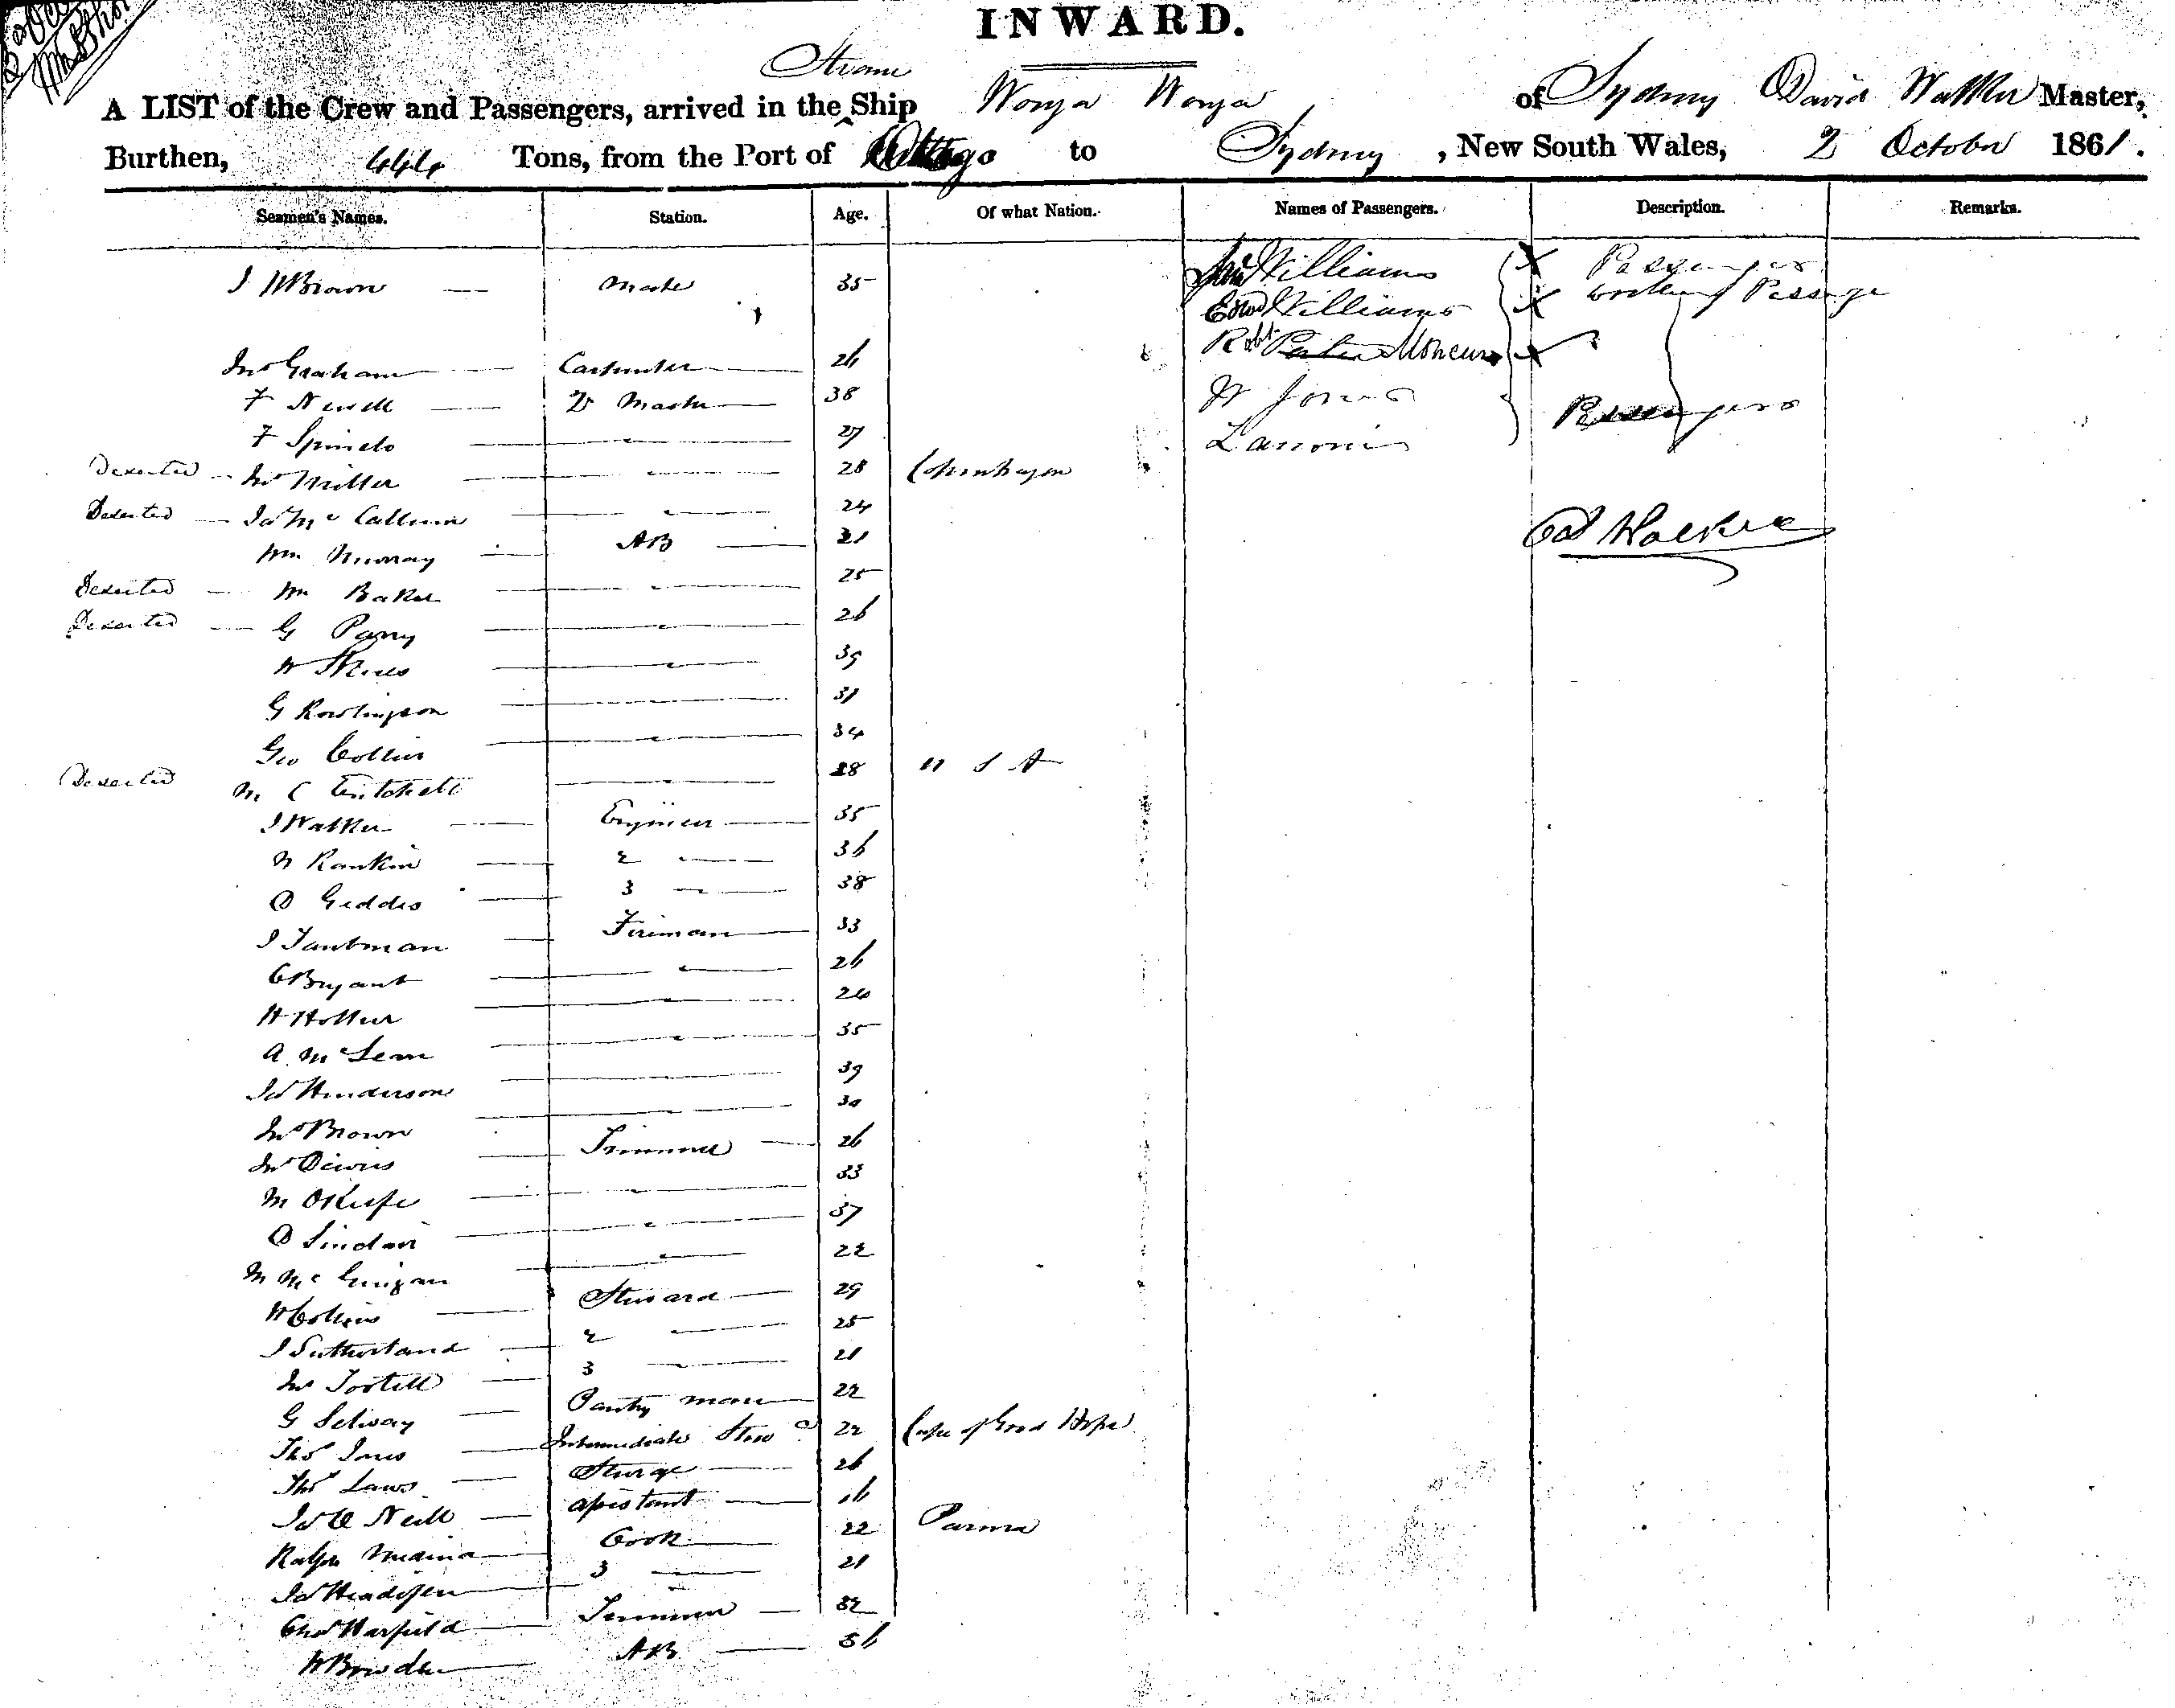 INWARD.
Steam
A LIST of the Crew and Passengers, arrived in the Ship Wonga Wonga of Sydney David Walker Master,
Burthen, 444 Tons, from the Port of Otago to Sydney, New South Wales, 2 October 1861.
Seamen's Names. Station. Age. Of what Nation. Names of Passengers. Description. Remarks.
J W Brown Mate 35 Williams X Passenger
Edwd Williams X working Passage
Robt Moncur X
Jno Graham Carpenter 26
F Newell 2 Master 38 W Jones Passengers
F Spinelo " 27 Zanoni
Deserted Jno Miller " 28 Copenhagen
Deserted Jas McCallum " 24
Wm Murray AB 21 D Walker
Deserted Wm Baker " 25
Deserted G Parry " 26
W " 39
G Rowlingson " 31
Geo Collins " 34
Deserted M C " 28 U S A
J Walker Engineer 35
N Rankin 2 " 36
D Geddes 3 " 38
J Taubman Fireman 33
C Bryant " 26
H " 24
A McLean " 35
Jas Henderson " 39
Jno Brown " 30
Jno Davies Trimmer 26
M OKeefe " 33
D Sinclair " 37
M McGuigan " 22
W Collins Steward 29
J Sutherland 2 " 25
Jno Tostell 3 " 21
G Selway Pantry man 22
Thos Jones Intermediate Stewd 22 Cape of Good Hope
Thos Laws Sturge 26
Jas O Neill assistant 16
Ralph Medina Cook 22 Parma
Jas 3 21
Chas Warfield Trimmer 32
W Bowden AB 36